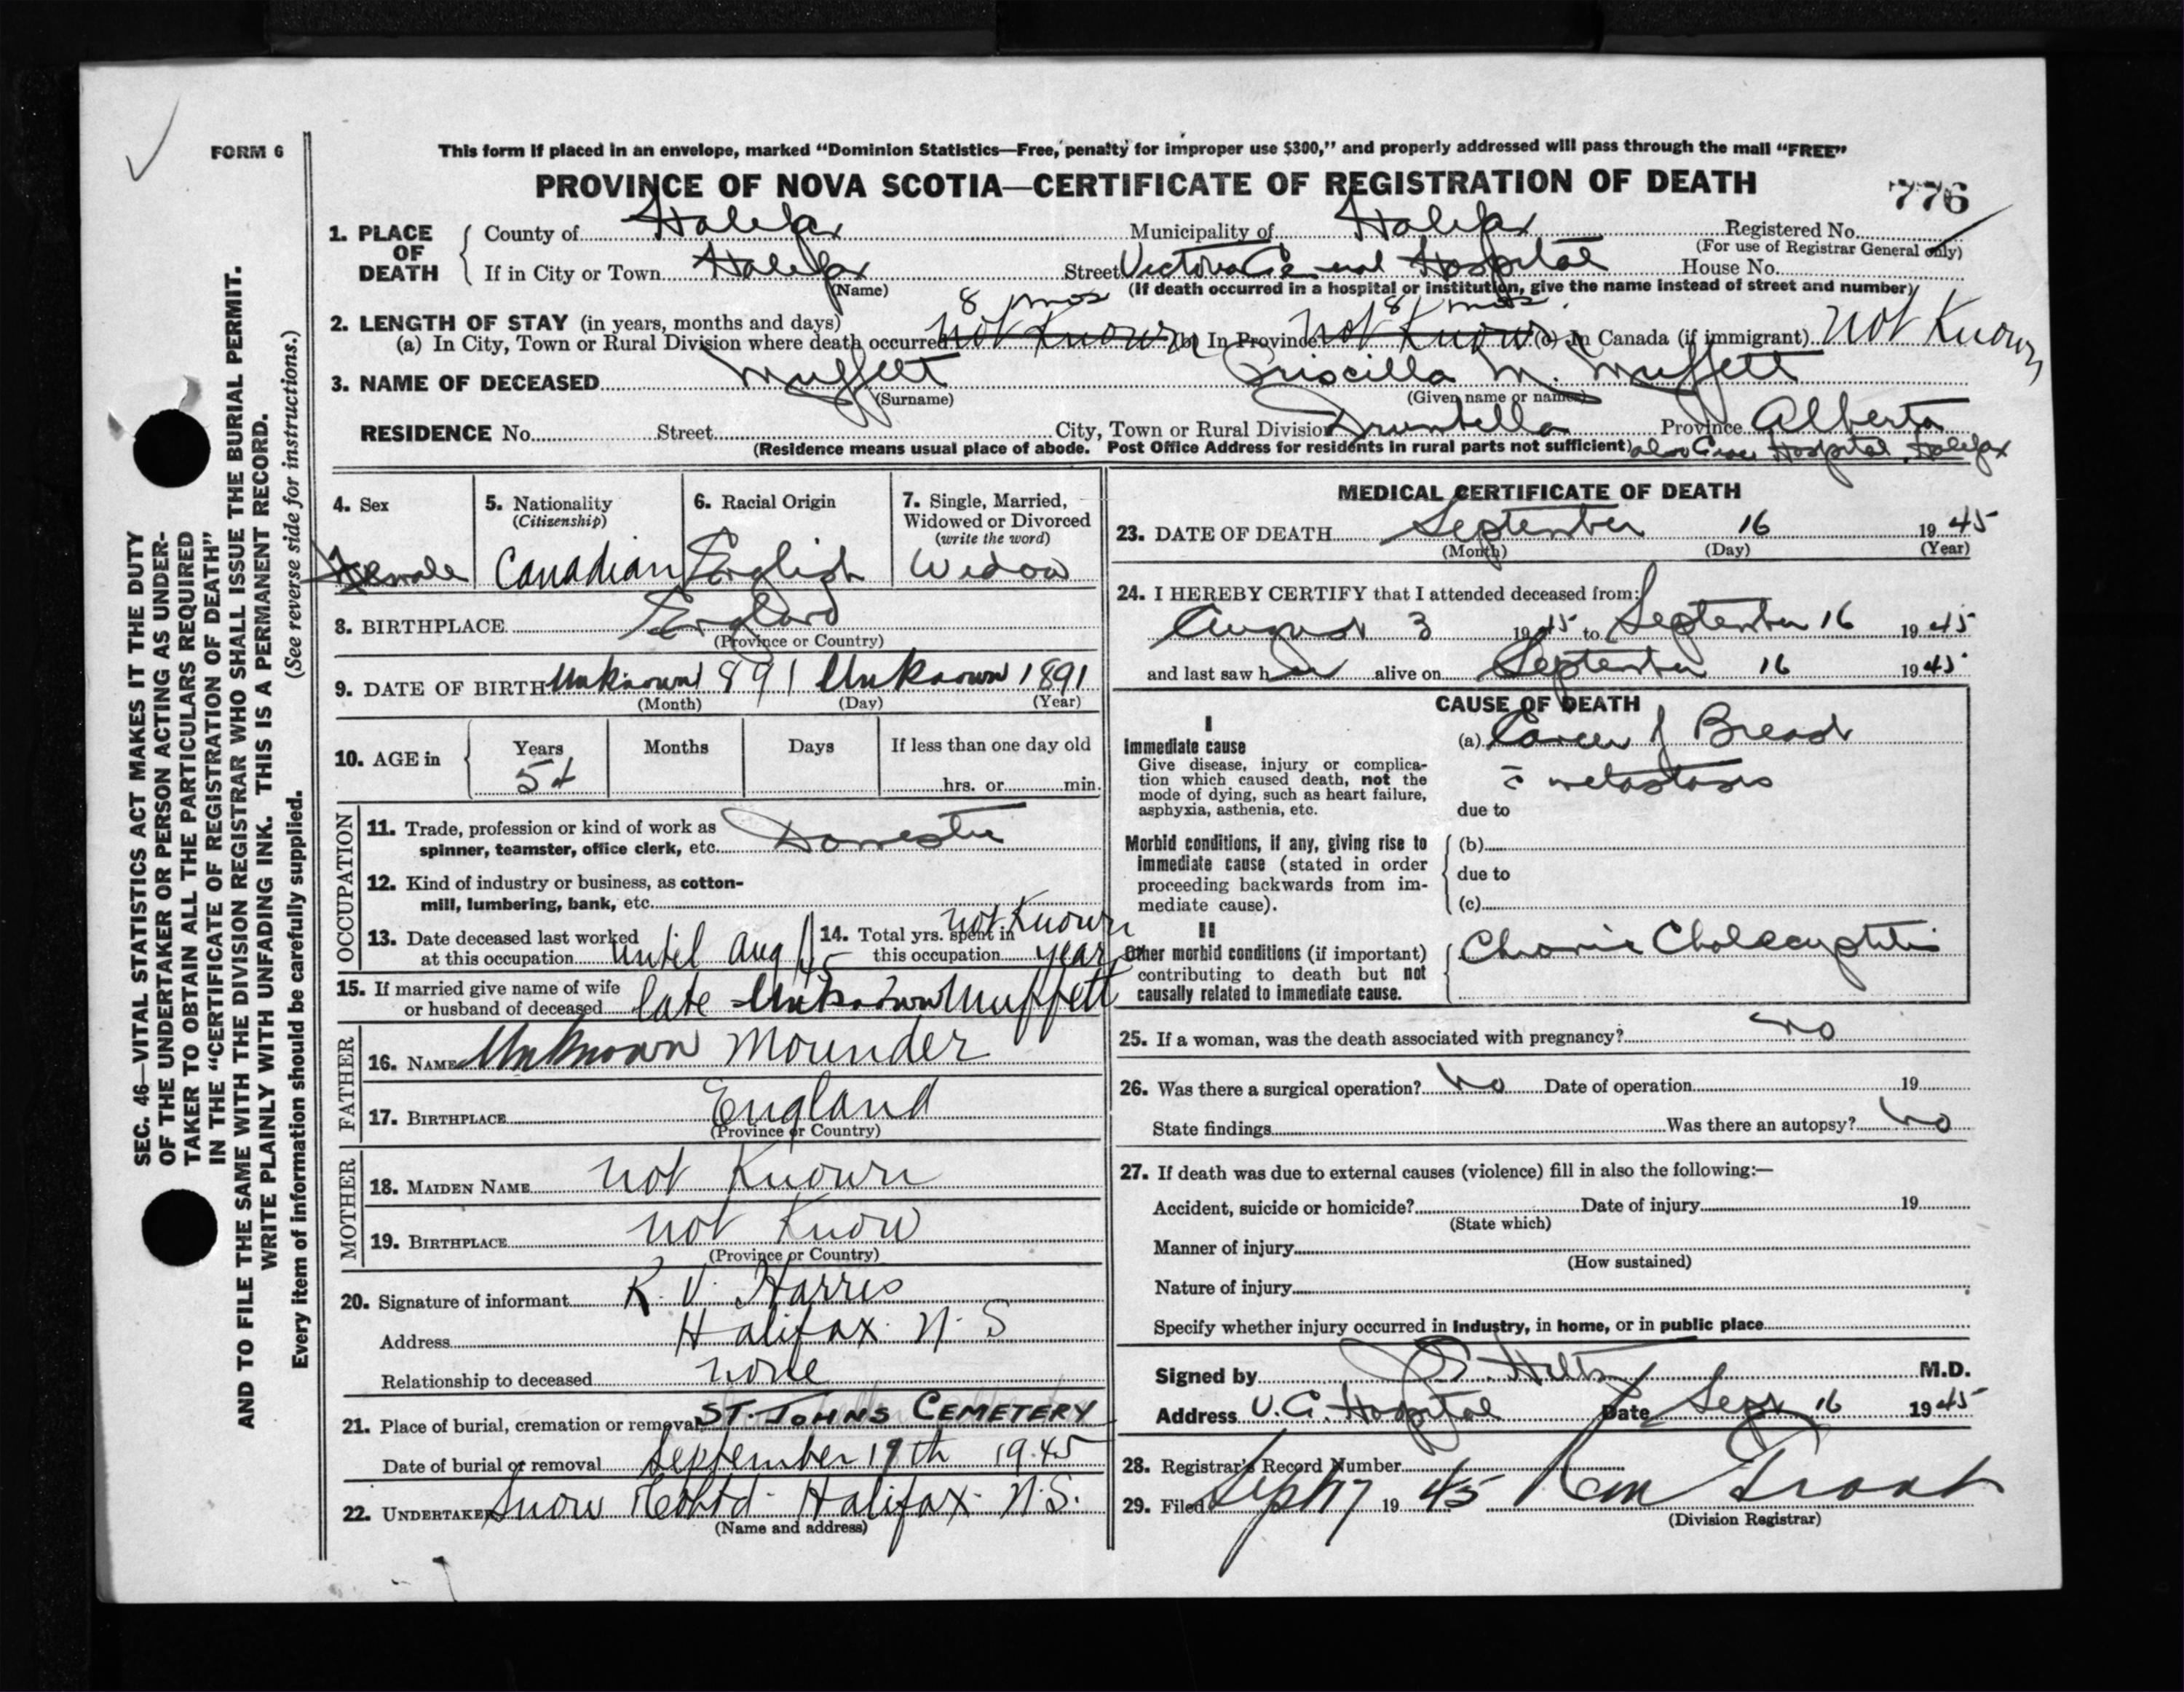 FORM 6
This form if placed in an envelope, marked "Dominion Statistics—Free, penalty for improper use $300," and properly addressed will pass through the mail "FREE"
PROVINCE OF NOVA SCOTIA—CERTIFICATE OF REGISTRATION OF DEATH
776
1. PLACE OF DEATH County of Halifax Municipality of Halifax Registered No.
(For use of Registrar General only)
If in City or Town Halifax Street Victoria General Hospital House No.
(Name) (If death occurred in a hospital or institution, give the name instead of street and number)
8 mos 8 mos.
2. LENGTH OF STAY (in years, months and days)
(a) In City, Town or Rural Division where death occurred not Known (b) In Province not Know (c) In Canada (if immigrant) not Known
3. NAME OF DECEASED Muffett Priscilla M. Muffett
(Surname) (Given name or names)
RESIDENCE No. Street City, Town or Rural Division Province Alberta
(Residence means usual place of abode. Post Office Address for residents in rural parts not sufficient) also Grace Hospital, Halifax
4. Sex Female
5. Nationality (Citizenship) Canadian
6. Racial Origin English
7. Single, Married, Widowed or Divorced (write the word) Widow
8. BIRTHPLACE England
(Province or Country)
9. DATE OF BIRTH Unknown 1891 Unknown 1891
(Month) (Day) (Year)
10. AGE in Years Months Days If less than one day old
54 hrs. or min.
OCCUPATION
11. Trade, profession or kind of work as
spinner, teamster, office clerk, etc. Domestic
12. Kind of industry or business, as cotton-
mill, lumbering, bank, etc.
13. Date deceased last worked
at this occupation until Aug 1/45
14. Total yrs. spent in
this occupation not Known years
15. If married give name of wife
or husband of deceased late Unknown Muffett
FATHER
16. NAME Unknown Mounder
17. BIRTHPLACE England
(Province or Country)
MOTHER
18. MAIDEN NAME not Known
19. BIRTHPLACE not Know
(Province or Country)
20. Signature of informant R. V. Harris
Address Halifax. N. S
Relationship to deceased none
21. Place of burial, cremation or removal ST. JOHNS CEMETERY
Date of burial or removal September 19th 1945
22. UNDERTAKER Snow & Co Ltd. Halifax. N.S.
(Name and address)
MEDICAL CERTIFICATE OF DEATH
23. DATE OF DEATH September 16 1945
(Month) (Day) (Year)
24. I HEREBY CERTIFY that I attended deceased from:
August 3 1945 to September 16 1945
and last saw her alive on September 16 1945
CAUSE OF DEATH
I
Immediate cause
Give disease, injury or complica-
tion which caused death, not the
mode of dying, such as heart failure,
asphyxia, asthenia, etc.
(a) Cancer of Breast
c̄ metastasis
due to
Morbid conditions, if any, giving rise to
immediate cause (stated in order
proceeding backwards from im-
mediate cause).
(b)
due to
(c)
II
Other morbid conditions (if important)
contributing to death but not
causally related to immediate cause.
Chronic Cholecystitis
25. If a woman, was the death associated with pregnancy? no
26. Was there a surgical operation? no Date of operation 19
State findings Was there an autopsy? no
27. If death was due to external causes (violence) fill in also the following:—
Accident, suicide or homicide? Date of injury 19
(State which)
Manner of injury
(How sustained)
Nature of injury
Specify whether injury occurred in industry, in home, or in public place
Signed by M.D.
Address V.G. Hospital Date Sept 16 1945
28. Registrar's Record Number
29. Filed Sept 17 1945
(Division Registrar)
SEC. 46—VITAL STATISTICS ACT MAKES IT THE DUTY
OF THE UNDERTAKER OR PERSON ACTING AS UNDER-
TAKER TO OBTAIN ALL THE PARTICULARS REQUIRED
IN THE "CERTIFICATE OF REGISTRATION OF DEATH"
AND TO FILE THE SAME WITH THE DIVISION REGISTRAR WHO SHALL ISSUE THE BURIAL PERMIT.
WRITE PLAINLY WITH UNFADING INK. THIS IS A PERMANENT RECORD.
Every item of information should be carefully supplied. (See reverse side for instructions.)